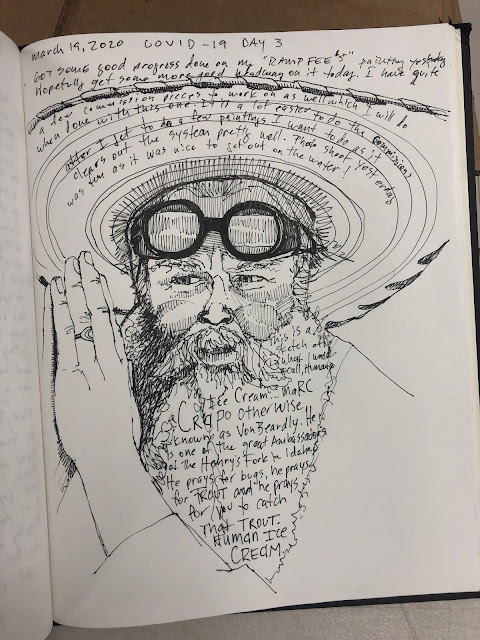 march 19, 2020 COVID-19 DAY 3
GOT some good progress done on my "RAMP FEE'S" painting yesterday.
Hopefully get some more good headway on it today. I have quite
a few commission pieces to work on as well which I will do
when done with this one. It is a lot easier to do the commissions
after I get to do a few paintings I want to do as it
clears out the system pretty well. Photo shoot yesterday
was fun as it was nice to get out on the water!
This is a
sketch of
what I would
call, Human
Ice Cream... maRC
CRapo otherwise
known as VonBeardly. He
is one of the great Ambassadors
of The Henry's Fork in Idaho.
He prays for bugs, he prays
for TROUT and he prays
for you to catch
That TROUT.
Human Ice
CREAM.